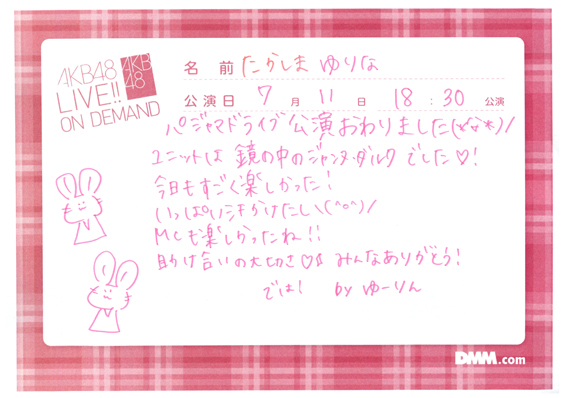 AKB48
LIVE!!
ON DEMAND
AKB
48
名 前 たかしま ゆりな
公演日 7 月 11 日 18 : 30 公演
パジャマドライブ 公演おわりました(*^^*)/
ユニットは 鏡の中のジャンヌ・ダルク でした♡!
今日もすごく楽しかった!
いっぱい汗かけたし\(^o^)/
MCも楽しかったね!!
助け合いの大切さ♡ みんなありがとう!
では! by ゆーりん
DMM.com